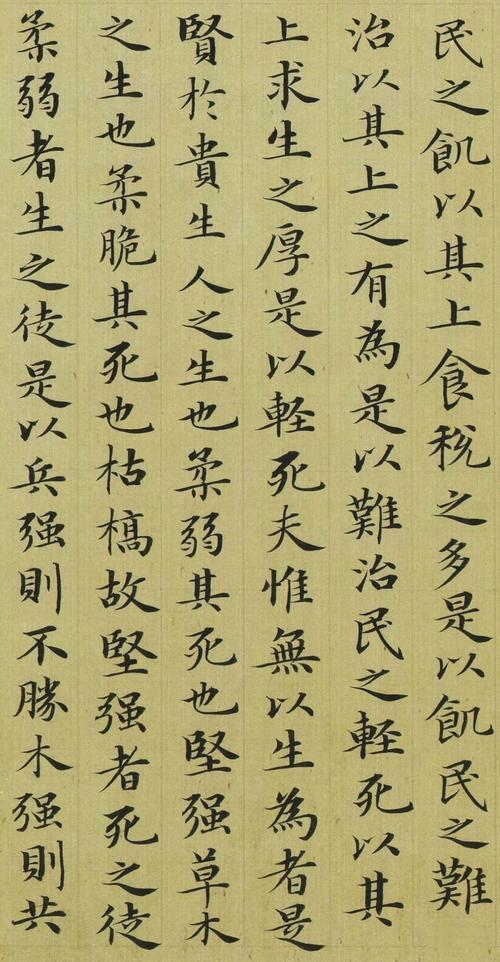 民之飢以其上食税之多是以飢民之難
治以其上之有為是以難治民之軽死以其
上求生之厚是以軽死夫惟無以生為者是
賢於貴生人之生也柔弱其死也堅强草木
之生也柔脆其死也枯槁故堅强者死之徒
柔弱者生之徒是以兵强則不勝木强則共